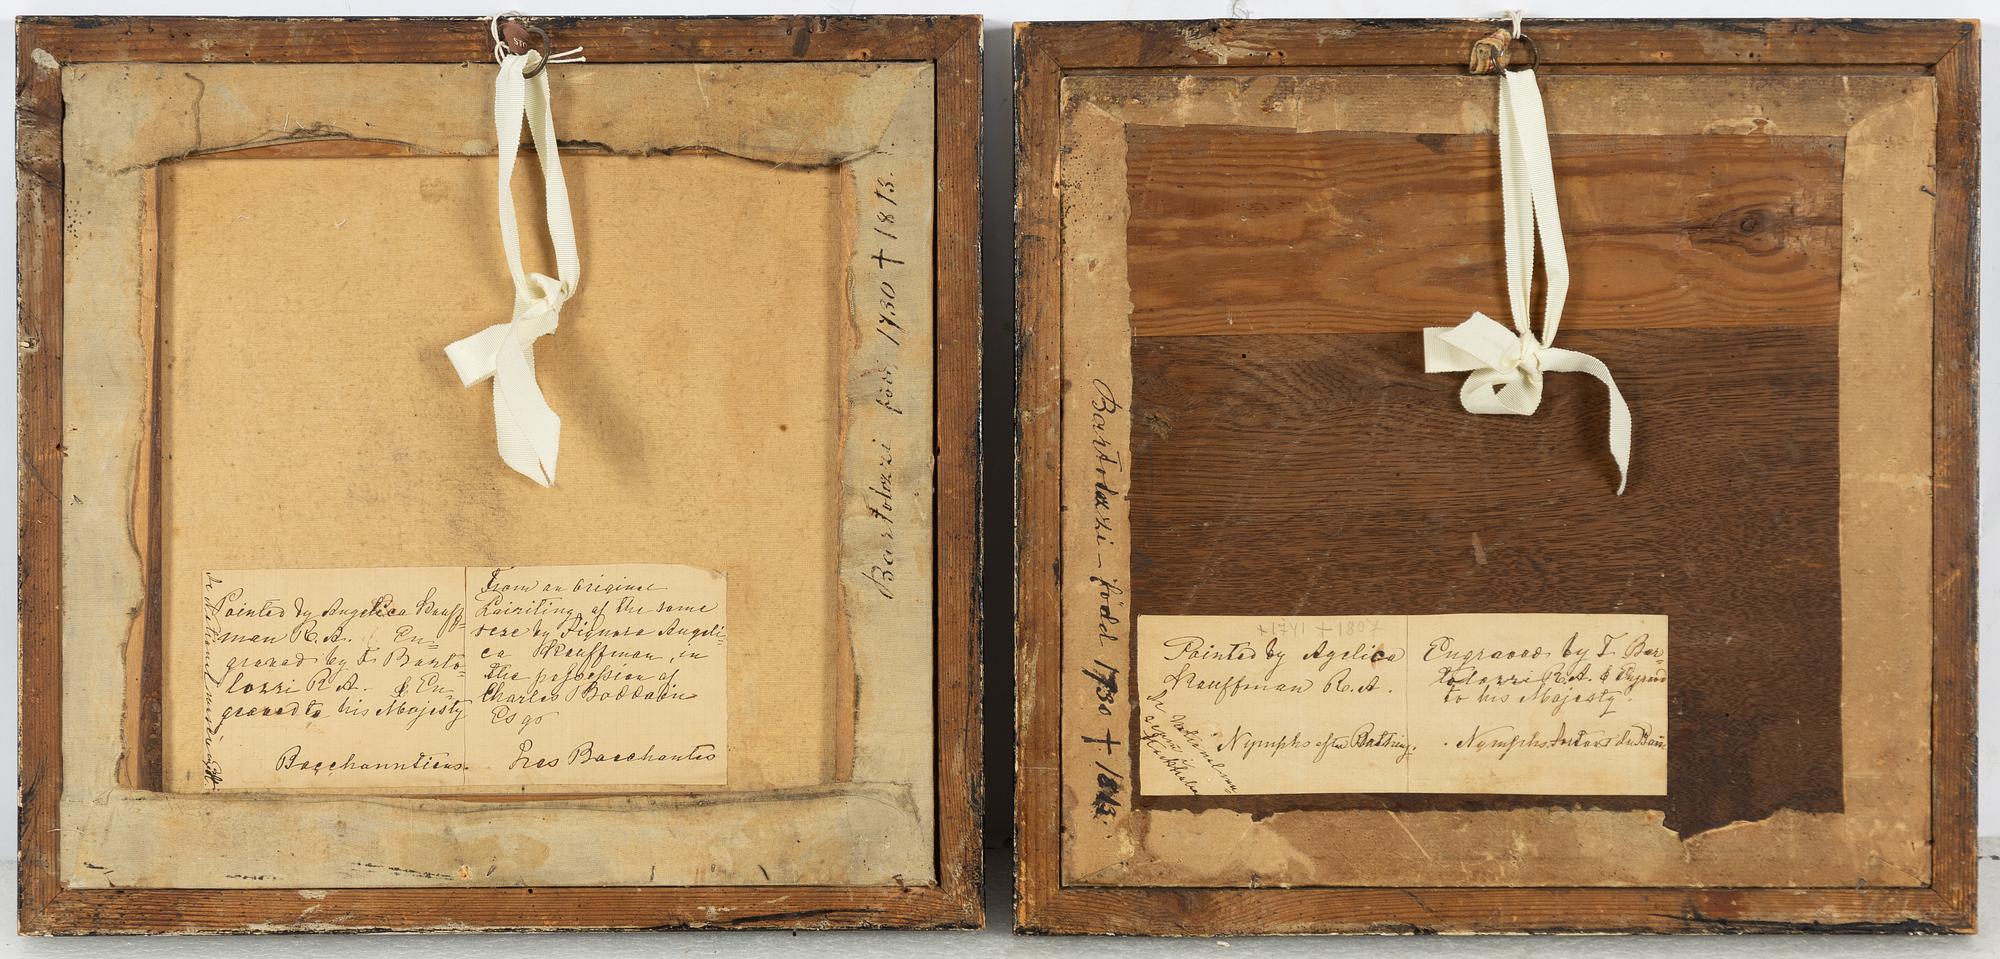 Bartolozzi född 1730 † 1813.
Painted by Angelica Kauff=
man R. A. En=
graved by F. Barto
lozzi R. A. & En=
graved to his Majesty
Bacchanntious.
From an Original
Painting of the same
seze by Signora Angeli=
ca Kauffman, in
the possession of
Charles Boddam
Esqr
Les Bacchantes
Bartolozzi – född 1730 † 1813.
*1741 † 1807
Painted by Agelica
Kauffman R. A.
Nymphs after Bathing.
Engraved by F. Bar=
tolozzi R. A. & Engraved
to his Majesty.
Nymphs Sortant du Bain